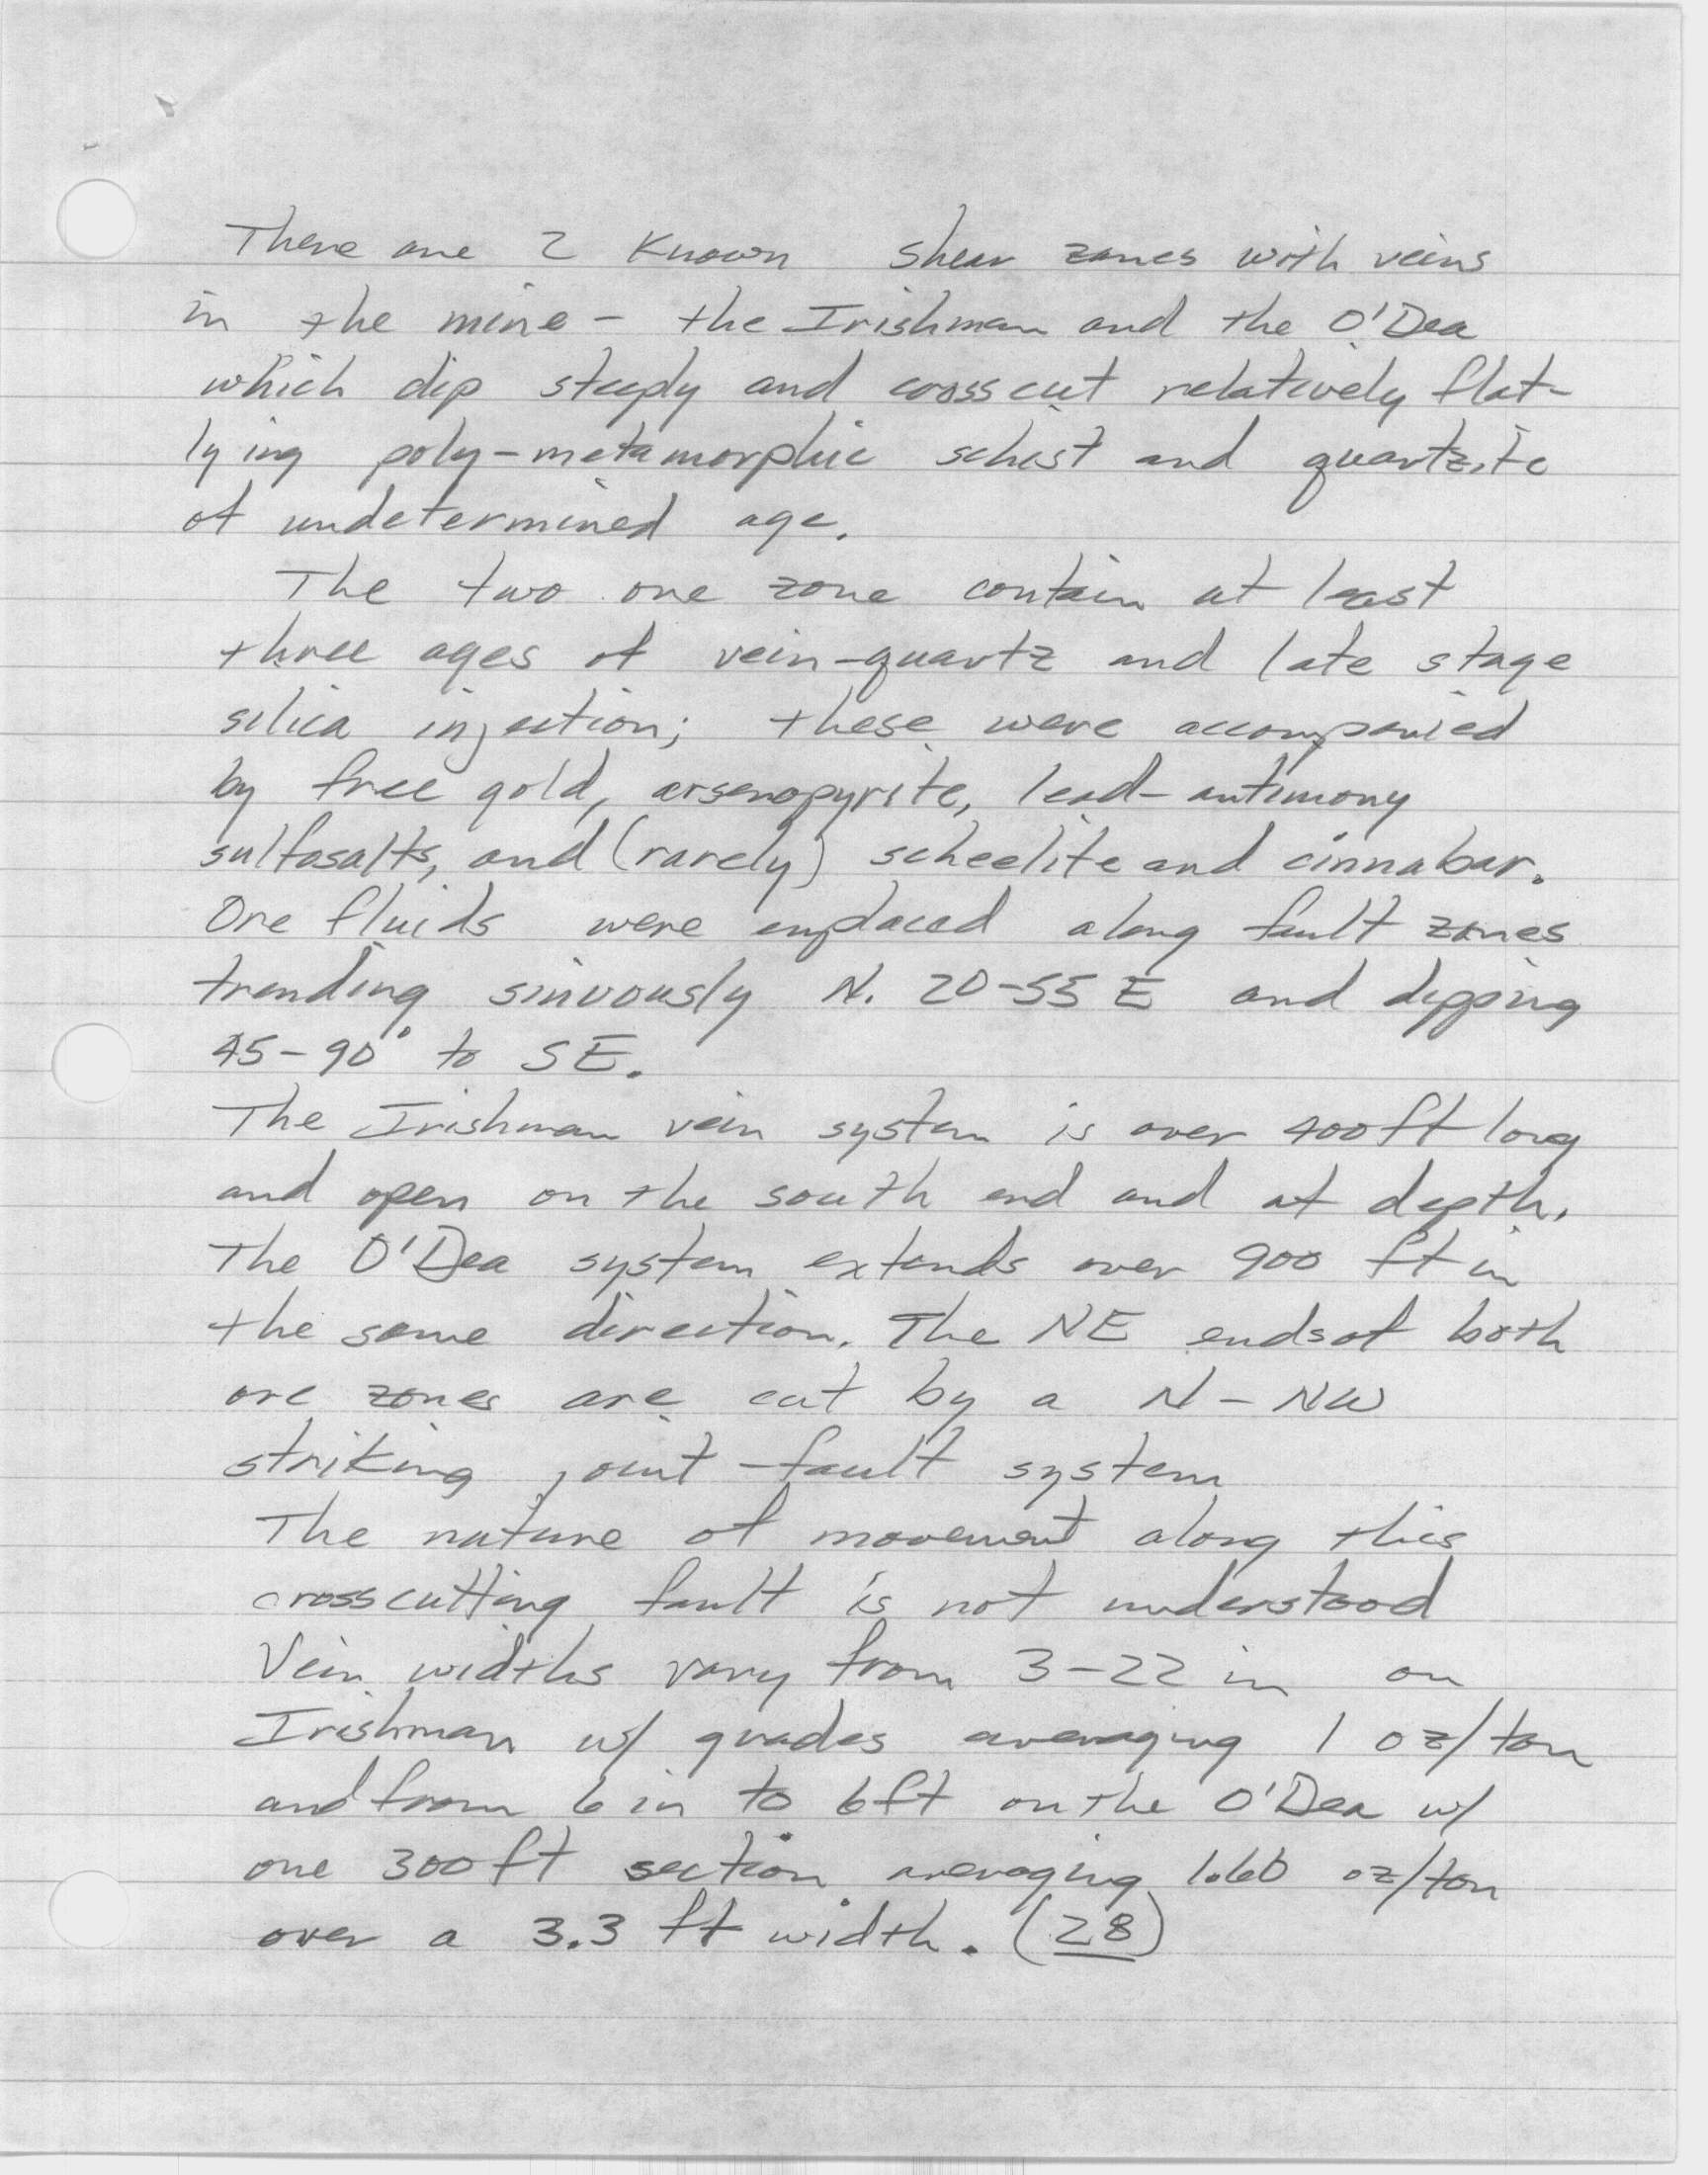 There are 2 Known shear zones with veins
in the mine - the Irishman and the O'Dea
which dip steeply and crosscut relatively flat-
lying poly-metamorphic schist and quartzite
of undetermined age.
The two ore zone contain at least
three ages of vein-quartz and late stage
silica injection; these were accompanied
by free gold, arsenopyrite, lead-antimony
sulfosalts, and (rarely) scheelite and cinnabar.
Ore fluids were emplaced along fault zones
trending sinuously N. 20-55 E and dipping
45-90° to SE.
The Irishman vein system is over 400 ft long
and open on the south end and at depth.
The O'Dea system extends over 900 ft in
the same direction. The NE ends of both
ore zones are cut by a N-NW
striking joint-fault system
The nature of movement along this
crosscutting fault is not understood
Vein widths vary from 3-22 in on
Irishman w/ grades averaging 1 oz/ton
and from 6 in to 6 ft on the O'Dea w/
one 300 ft section averaging 1.60 oz/ton
over a 3.3 ft width. (28)